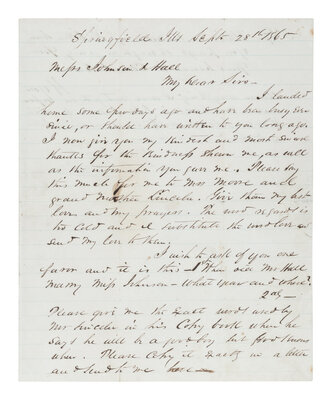 Springfield, Ills Sept. 28th 1865
Messrs Johnson & Hall
My Dear Sirs—
I landed
home some few days ago and have been busy ever
since, or should have written to you long ago.
I now give you my kindest and most sincere
thanks for the kindness shown me, as well
as the information you gave me. Please say
this much for me to Mrs Moore and
grand Mother Lincoln. Give them my best
love and my prayers. The word regards is
too cold and I substitute the word love and
send my love to them.
I wish to ask of you one
favor and it is this— When did Mr Hall
marry Miss Johnson— What year and where?
2nd—
Please give me the exact words used by
Mr Lincoln in his Copy book when he
says he will be a good boy but God knows
when. Please Copy it exactly in a letter
and send to me here—